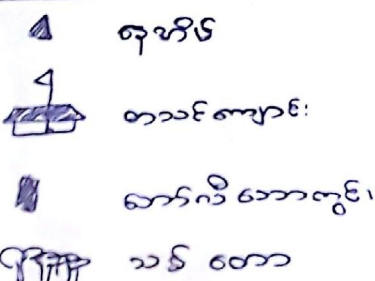 နေအိမ်
စာသင်ကျောင်း
ဘော်လီဘောကွင်း
သစ် တော